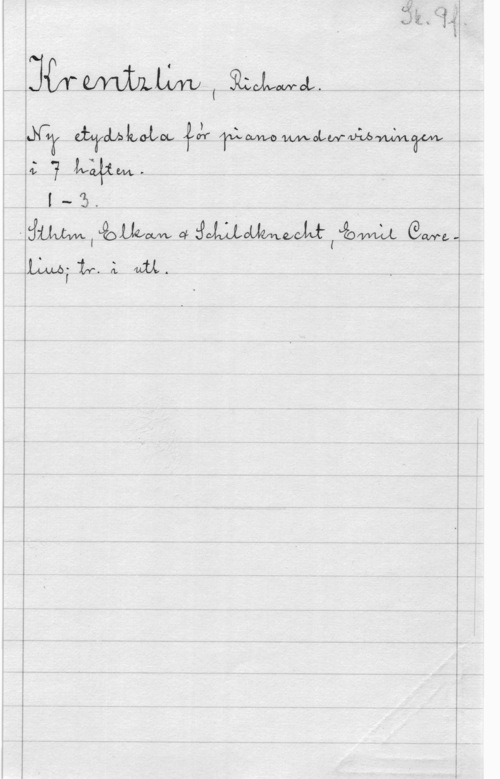 Sk. 9f.
Krentzlin, Richard.
Ny etydskola för pianoundervisningen
i 7 häften.
1 - 3.
Sthlm, Elkan & Schildknecht, Emil Care-
lius; tr. i utl.